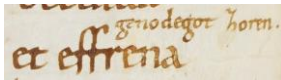 genodegot horen.
et effrena